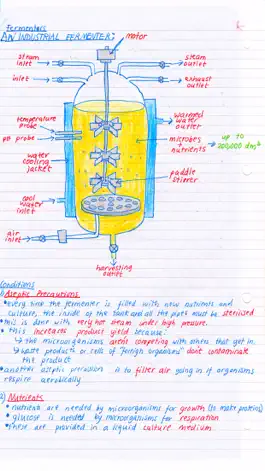 Fermenters
AN INDUSTRIAL FERMENTER:
motor
steam inlet
steam outlet
inlet
exhaust outlet
temperature probe
pH probe
warmed water outlet
microbes + nutrients → up to 200,000 dm³
water cooling jacket
paddle stirrer
cool water inlet
air inlet
harvesting outlet
Conditions
1) Aseptic Precautions
• every time the fermenter is filled with new nutrients and
culture, the inside of the tank and all the pipes must be sterilised
• this is done with very hot steam under high pressure.
• this increases product yield because:
↳ the microorganisms aren't competing with others that get in.
↳ waste products or cells of "foreign organisms" don't contaminate
the product
• another aseptic precaution is to filter air going in if organisms
respire aerobically
2) Nutrients
• nutrients are needed by microorganisms for growth (to make proteins)
• glucose is needed by microorganisms for respiration
• these are provided in a liquid culture medium